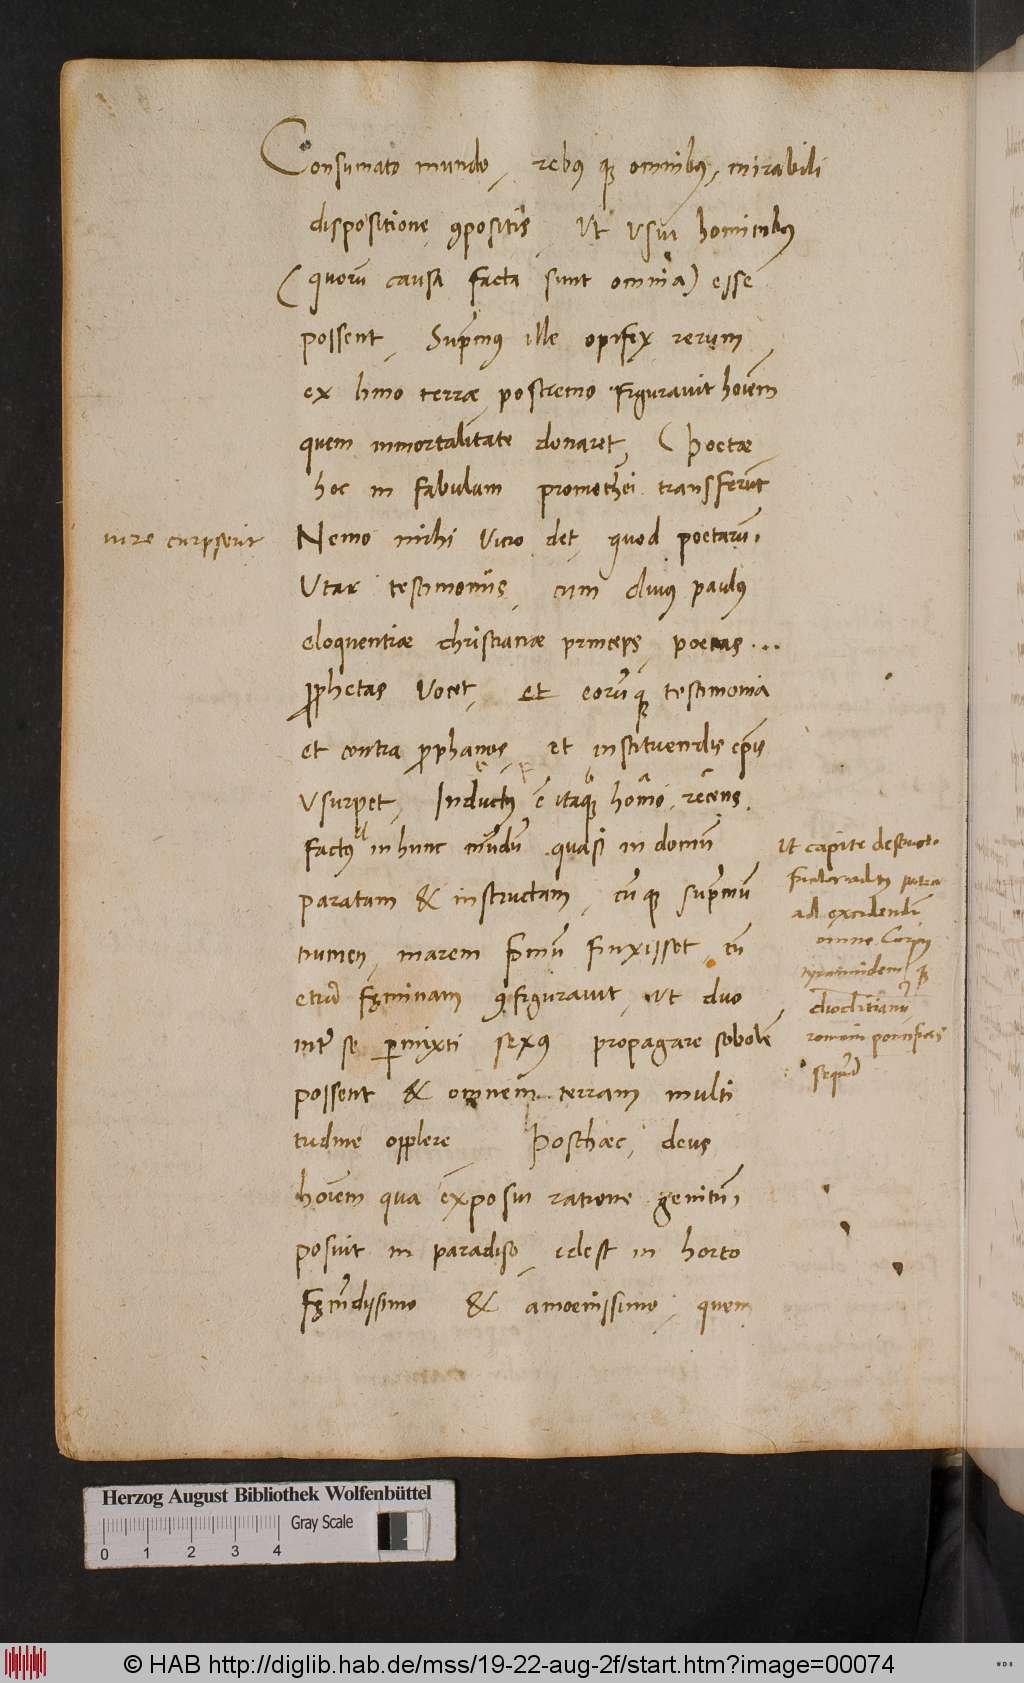 Consumato mundo, rebꝰ qꝫ omnibꝰ, mirabili
dispositione ꝯpositis, Ut Usui hominibꝰ
(quorū causa facta sunt omnia) esse
possent, Suprēmꝰ ille opifex rerum
ex limo terræ postremo figuravit hoīem
quem inmortalitate donaret, (Poetæ
hoc in fabulam promothei transferūt
iure carpserit
Nemo mihi Vicio det, quod poetarū
Utar testimoniis, cum divꝰ paulꝰ
eloquentiæ christianæ princeps, poetas ...
ꝓphetas Vocet, et eorūqꝫ testimonia
et contra ꝓphanos, et instituendis
Usurpet, Inductꝰ ē itaqꝫ homo recens
factꝰ in hunc mūdū quasi in domū
paratam & instructam, cūqꝫ suprēmū
numen, marem primū finxisset, eū
etiā fęminam ꝯfiguravit, ut duo
inter se ꝑmixti sexꝰ propagare sobolē
possent & omnem terram multi
tudine opplere, Posthæc, deus
hoīem qua exposui ratione genitū
posuit in paradiso, idest in horto
fęcūdissimo & amoenissimo, quem
Ut capite
ad excidendū
omne
tyrannidem
romani pontifices
Herzog August Bibliothek Wolfenbüttel
Gray Scale
0 1 2 3 4
© HAB http://diglib.hab.de/mss/19-22-aug-2f/start.htm?image=00074